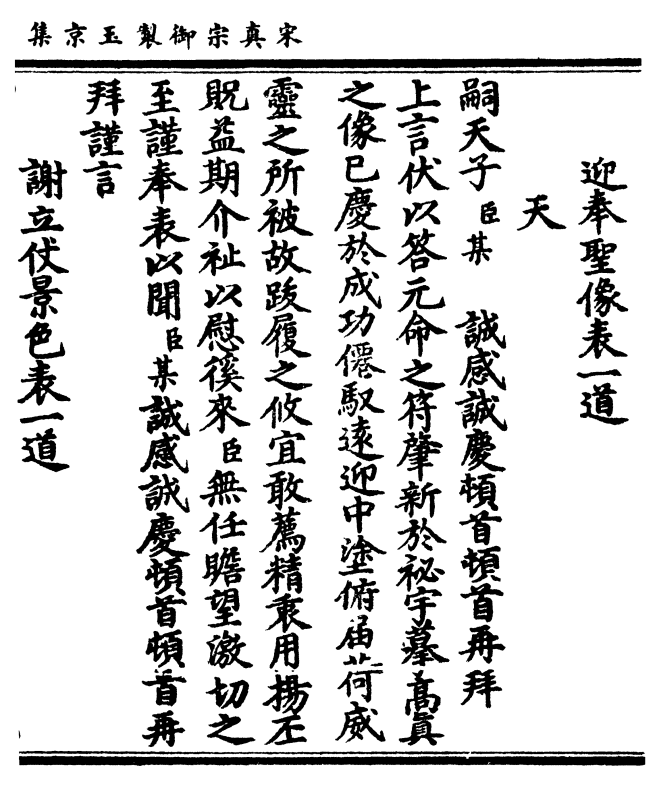 宋真宗御製玉京集
迎奉聖像表一道
天
嗣天子臣某 誠感誠慶頓首頓首再拜
上言伏以答元命之符肇新於祕宇摹髙眞
之像已慶於成功僊馭逺迎中塗俯届荷威
靈之所被故跋履之攸宜敢薦精衷用揚丕
貺益期介祉以慰徯來臣無任瞻望激切之
至謹奉表以聞臣某誠感誠慶頓首頓首再
拜謹言
謝立仗景色表一道